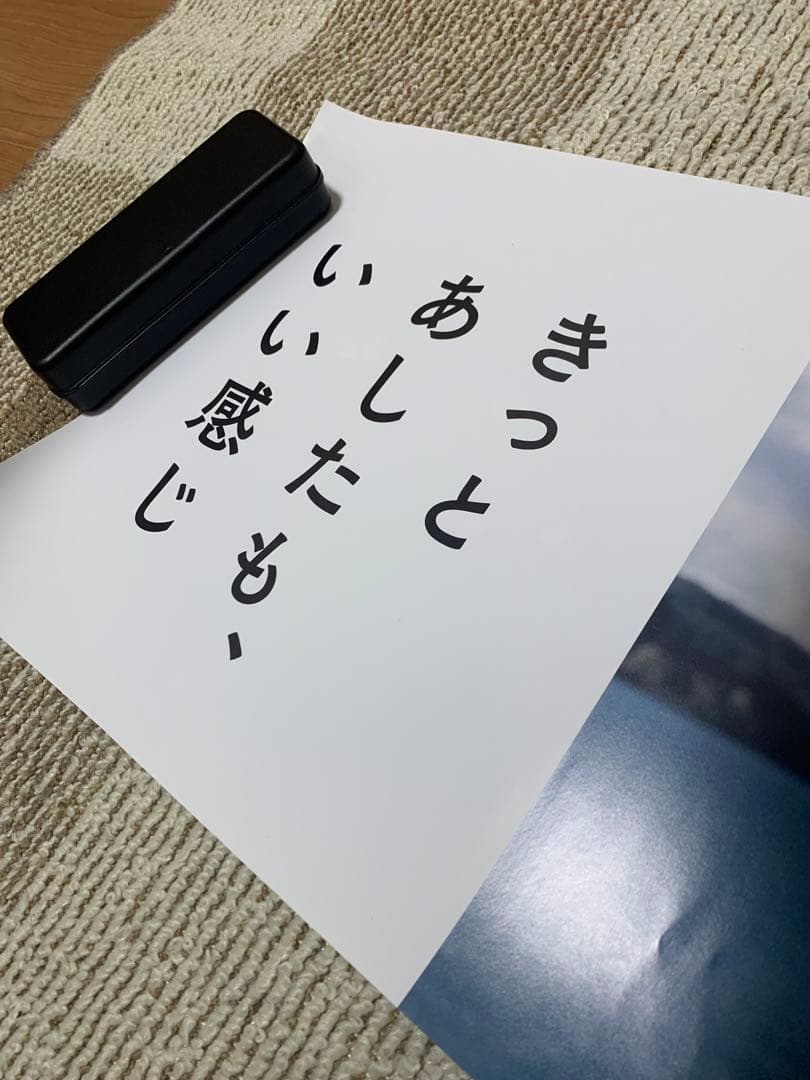 きっと
あしたも、
いい感じ